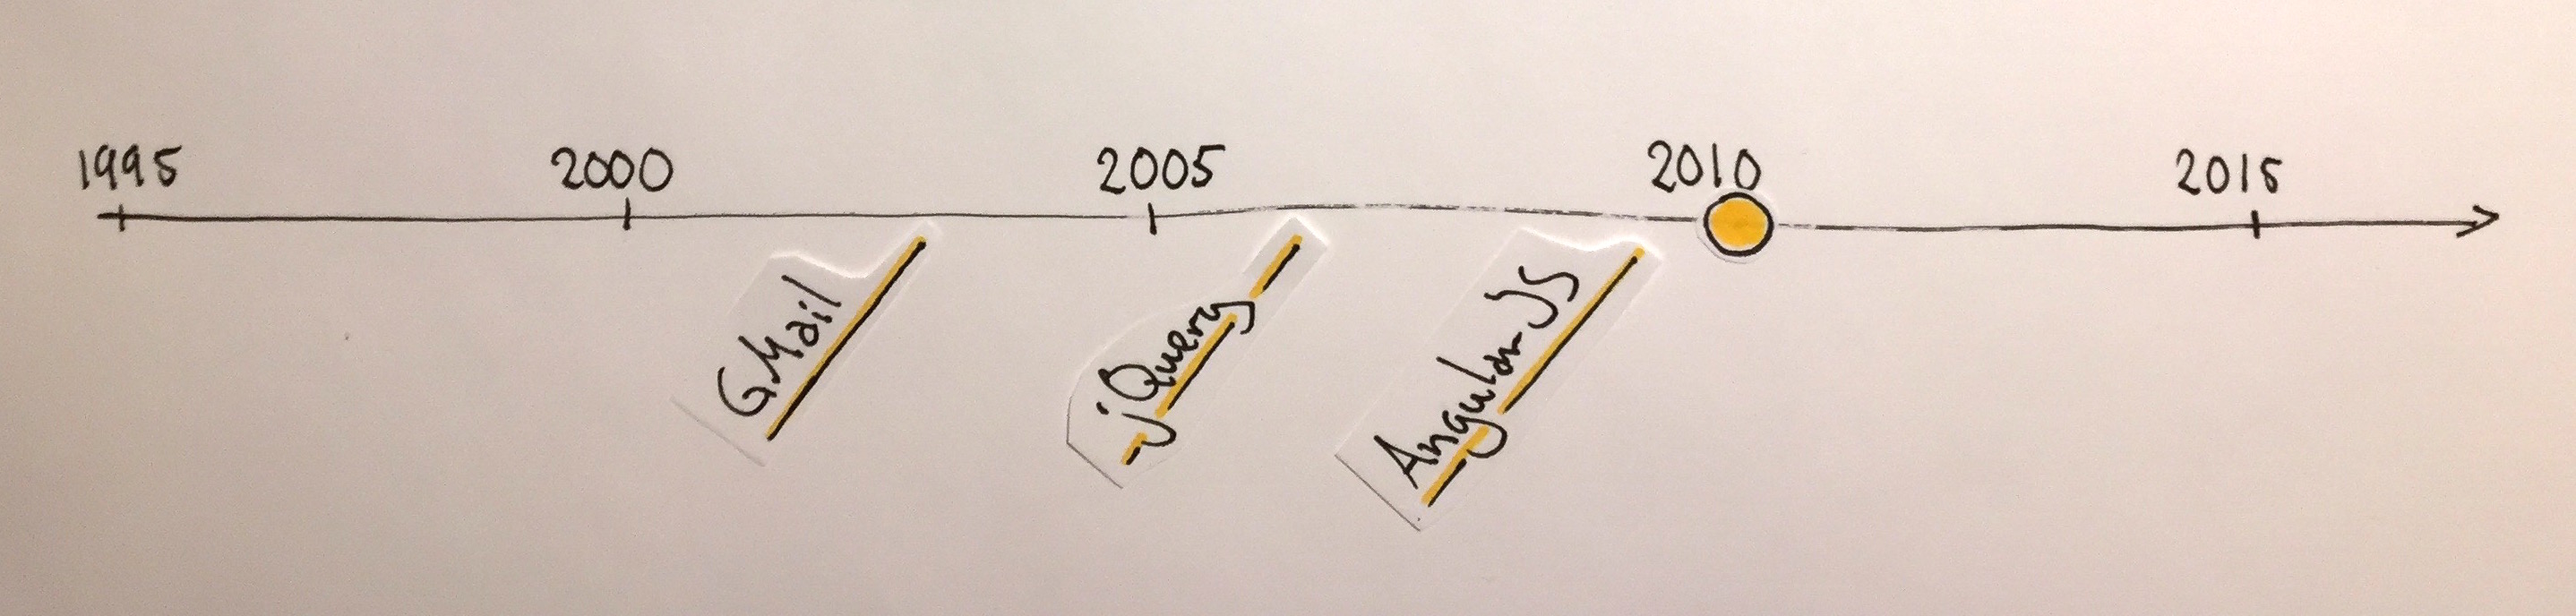 1995 2000 2005 2010 2015
GMail
jQuery
AngularJS